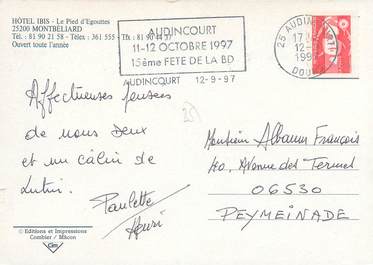 HÔTEL IBIS - Le Pied d'Egouttes
25200 MONTBÉLIARD
Tél. : 81 90 21 58 - Télex : 361 555 - Fax : 81 90 44 37
Ouvert toute l'année
AUDINCOURT
11-12 OCTOBRE 1997
15ème FETE DE LA BD
AUDINCOURT 12-9-97
25 AUDINCOURT
17 H
12-9
1997
DOUBS
Affectueuses pensées
de nous deux
et un câlin de
Lutin.
Paulette
Henri
Monsieur Albaum François
40, Avenue des Termes
06530
PEYMEINADE
© Editions et Impressions
Combier / Mâcon
Cim